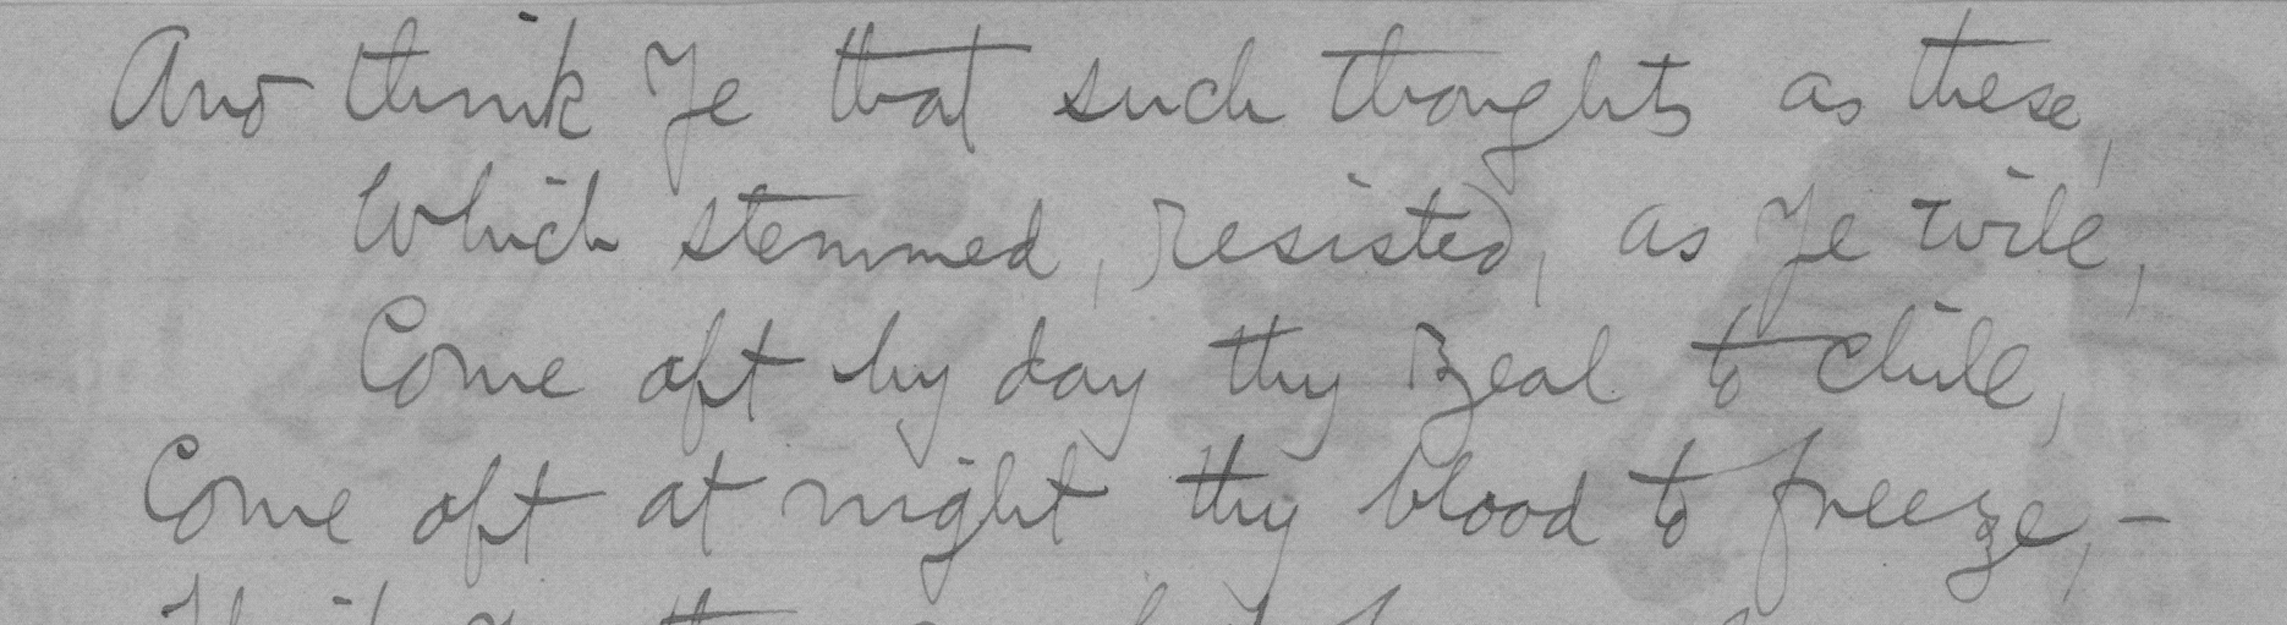 And think Ye that such thoughts as these,
Which stemmed, resisted, as Ye will,
Come oft by day thy zeal to chill,
Come oft at night thy blood to freeze, –